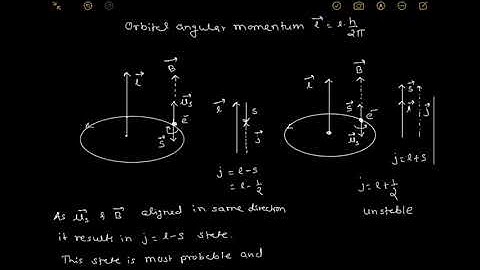 Orbital angular momentum l⃗ = l·h/2π
l⃗ B⃗ μ⃗s e⁻ S⃗ l⃗ s j⃗
l⃗ B⃗ S⃗ e⁻ μ⃗s s⃗ l⃗ j⃗
j = l-s
= l-1/2
j = l+s
j = l+1/2
unstable
As μ⃗s & B⃗ aligned in same direction
it results in j = l-s state.
This state is most probable and